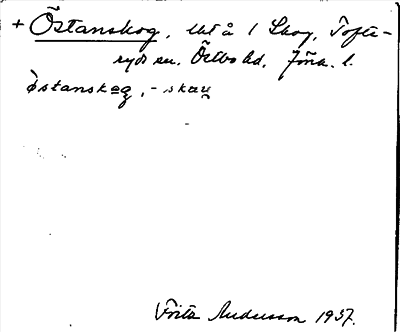 + Östanskog, utå 1 Skog, Tofte-
ryds sn. Östbo hd. Jön. l.
östanskog, - skau
Frits Andersson 1937.